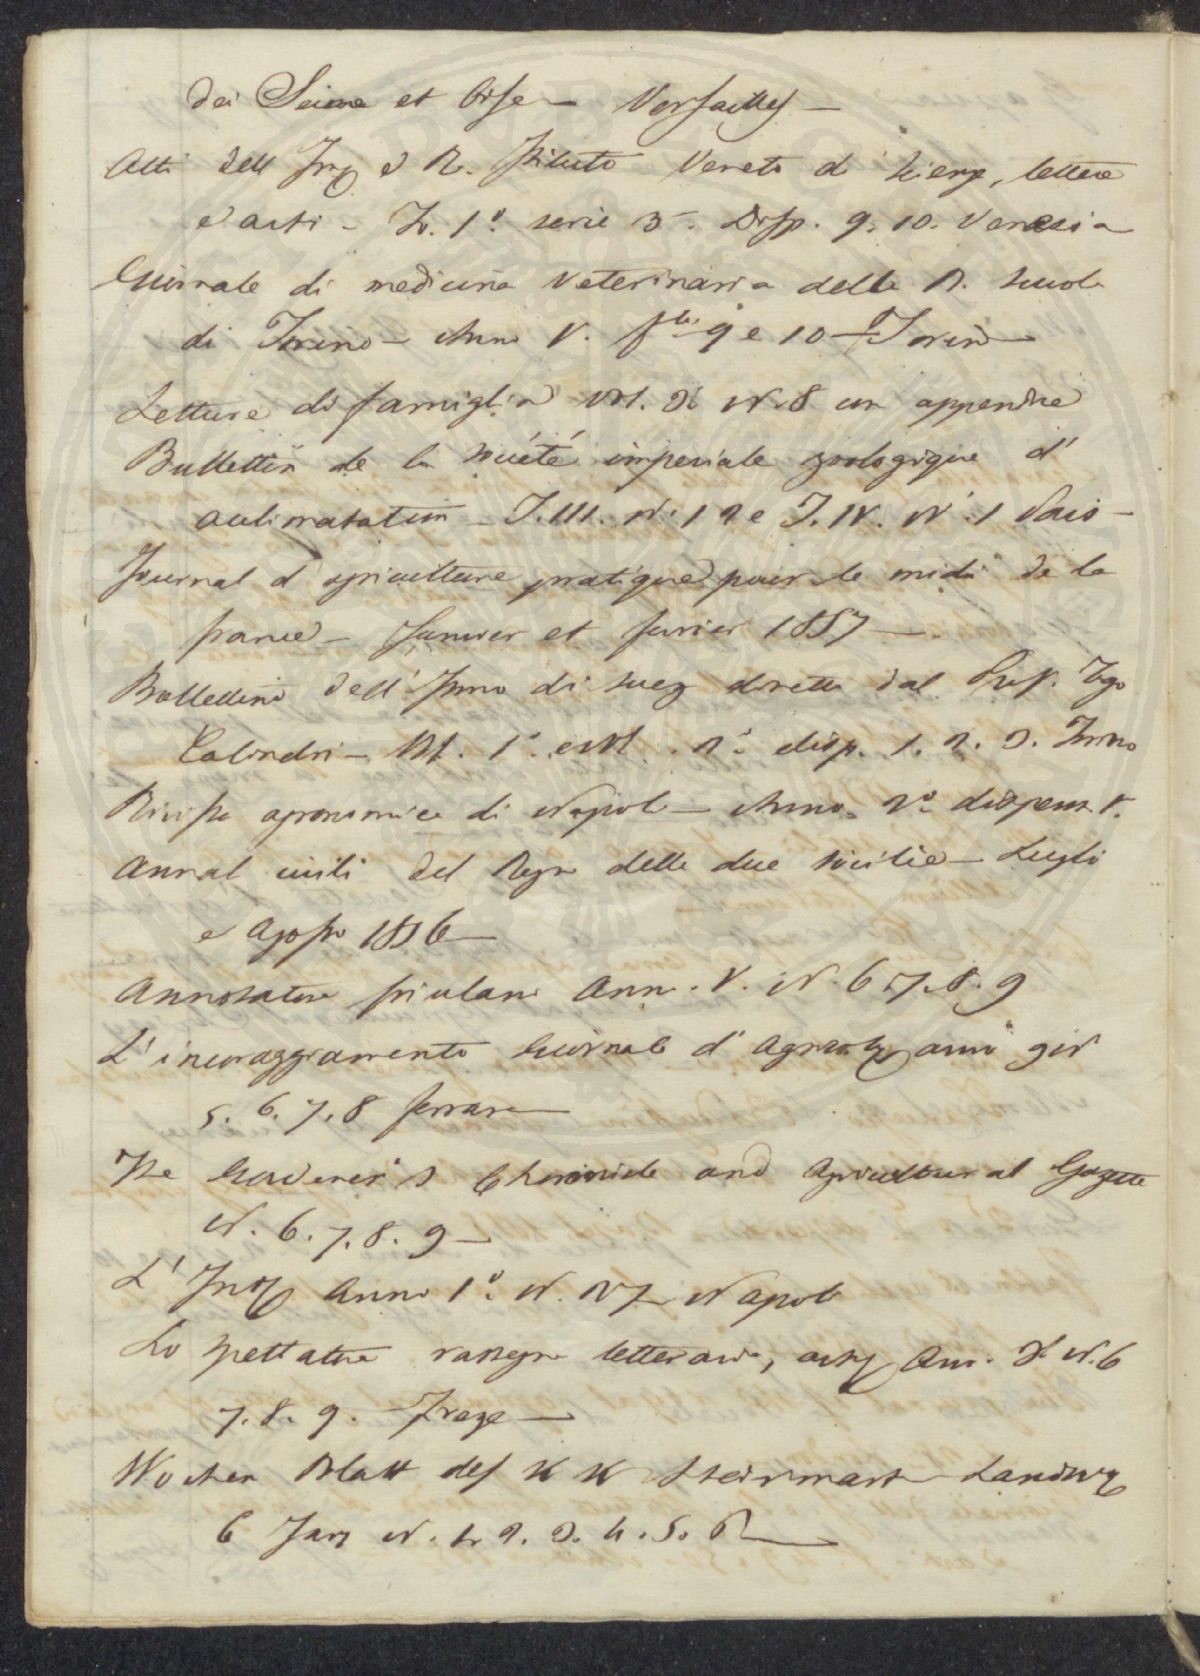 dei Seine et Oise – Versailles –
Atti dell Imp e R. Istituto Veneto di Scienze, lettere
ed arti – T. 1° serie 3ª. Disp. 9. 10. Venezia
Giornale di medicina Veterinaria della R. Scuola
di Torino – Anno V. 9 e 10 – Torino
Letture di famiglia Vol. X N. 8 con appendice
Bullettin de la Société imperiale zoologique d'
aclimatation – T. III. N. 12 e T. IV. N. 1 Paris –
Journal d'agriculture pratique pour le midi de la
france – Janvier et fevrier 1857 –
Bollettino dell'Istmo di Suez diretto dal Prof. Ugo
Calindri – Vol. 1° e Vol. 2° disp. 1. 2. 3. Torino
Rivista agronomica di Napoli – Anno 2° dispensa V.
Annal civili del Regno delle due Sicilie – Luglio
e Agosto 1856 –
Annotatore friulano Ann. V. N. 6. 7. 8. 9
L'incoraggiamento Giornale d'Agricolt anno
5. 6. 7. 8 ferrara –
The Gardener's Chronicle and Agricultural Gazette
N. 6. 7. 8. 9 –
Anno 1° N. Napoli
Lo Spettatore rassegna letteraria, Ann. N. 6
7. 8. 9. Firenze –
Wochen Blatt des K K Steirmark Landw
6 Jarg N. 1. 2. 3. 4. 5. 6 –